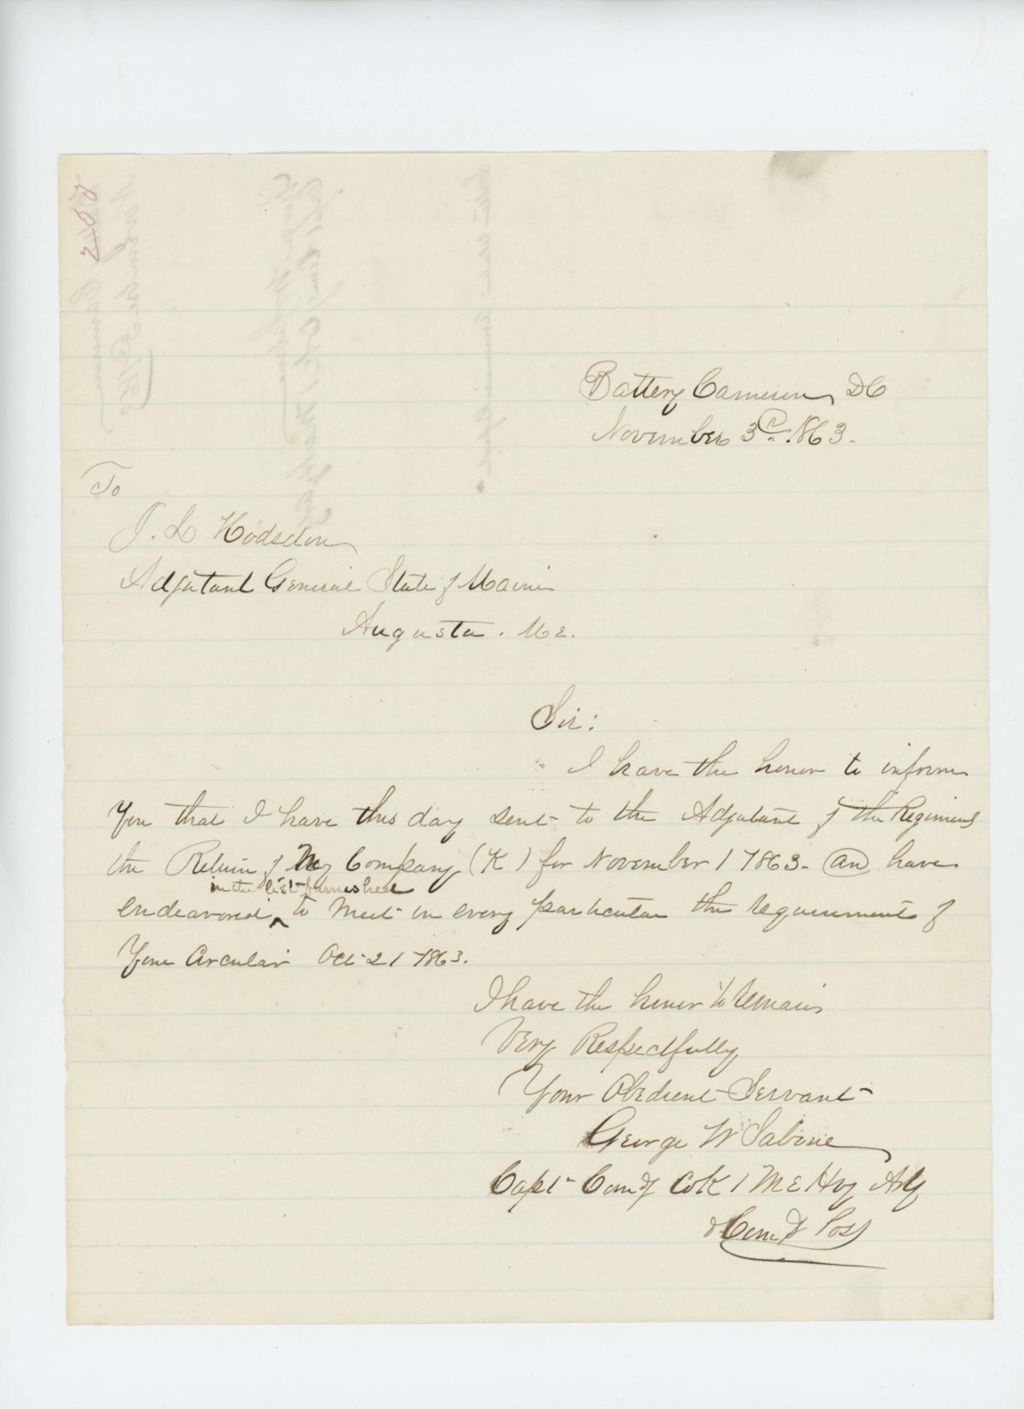 Battery Cameron, DC
November 3d. 1863.
To
J. L Hodsdon
Adjutant General State of Maine
Augusta. Me.
Sir:
I have the honor to inform
You that I have this day sent to the Adjutant of the Regiment
the Return of My Company (K) for November 1 1863. and have
in the list furnished
endeavored ^ to meet in every particular the requirements of
Your Circular Oct 21 1863.
I have the honor to remain
Very Respectfully
Your Obedient Servant
George W Sabine
Capt Comd'g Co K 1 ME Hvy Arty
& Com'd Post